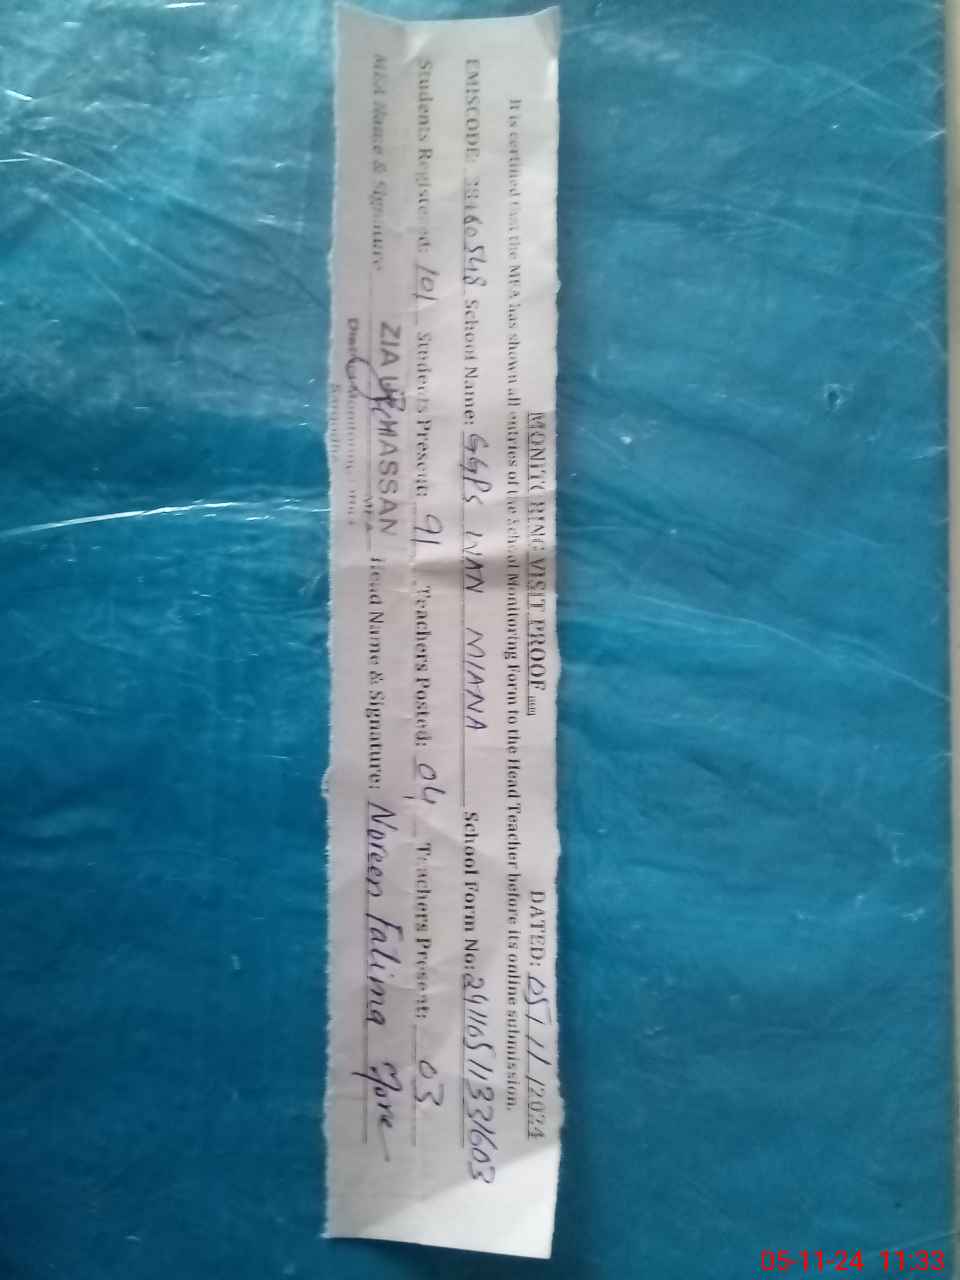 MONITORING VISIT PROOF DATED: 05/11/2024
It is certified that the MEA has shown all entries of the School Monitoring Form to the Head Teacher before its online submission.
EMISCODE: 38160548 School Name: GGPS WAN MIANA School Form No: 24110511331603
Students Registered: 101 Students Present: 91 Teachers Posted: 04 Teachers Present: 03
MEA Name & Signature ZIA UL HASSAN Head Name & Signature: Noreen Fatima
MEA
Monitoring Office
Sargodha
05-11-24 11:33